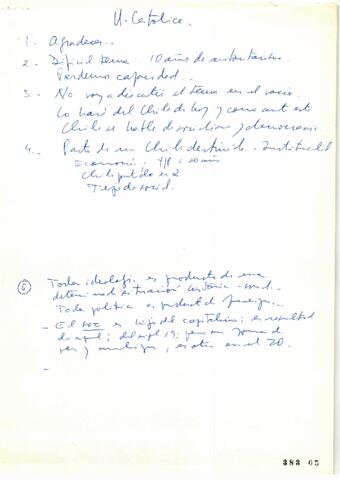 U. Católica.
1.- Agradecer...
2.- Difícil tema 10 años de autoritarismo
Perdemos capacidad...
3.- No voy a discutir el tema en el vacío.
Lo haré del Chile de hoy y como ant esto
Chile se habla de socialismo y democracia
4.- Parto de un Chile destruido.- Institucional
Economi. = 20 años
Chile partido en 2
Tejido social.
5 Toda ideología es producto de una
determinada situación histórica-social.
Toda política es producto
- El soc es hijo del capitalismo; es resultado
del siglo 19; pero su forma de
ver y es otra en el 20.
-
383 05